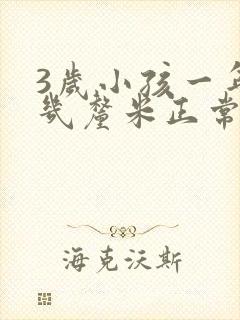 3歲小孩一年
幾釐米正常
海克沃斯